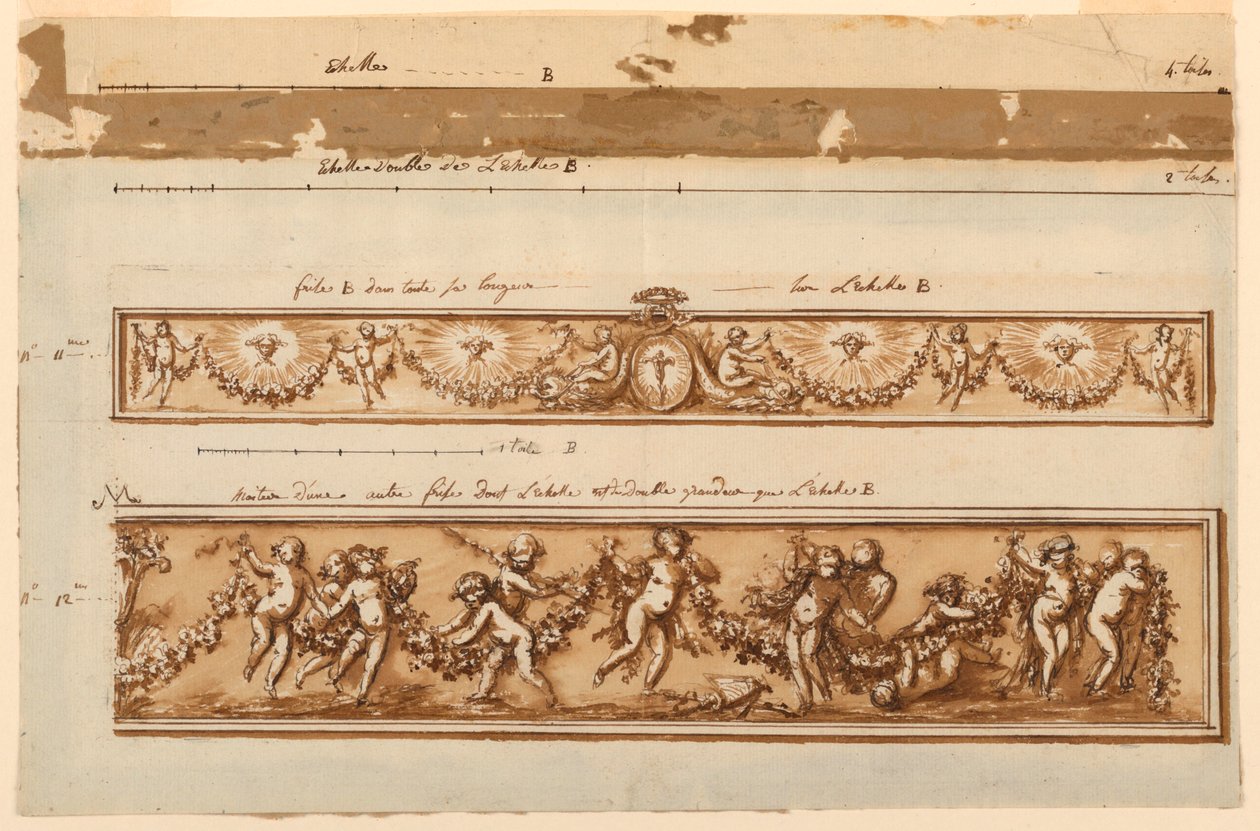 Echelle B 4. toises.
Echelle Double de L'Echelle B. 2 toises.
frise B Dans toute sa longeur sur L'Echelle B.
N° 11 me
1 toise B.
Moitié D'une autre frise Dont L'Echelle est Double grandeur que L'Echelle B.
N° 12 me